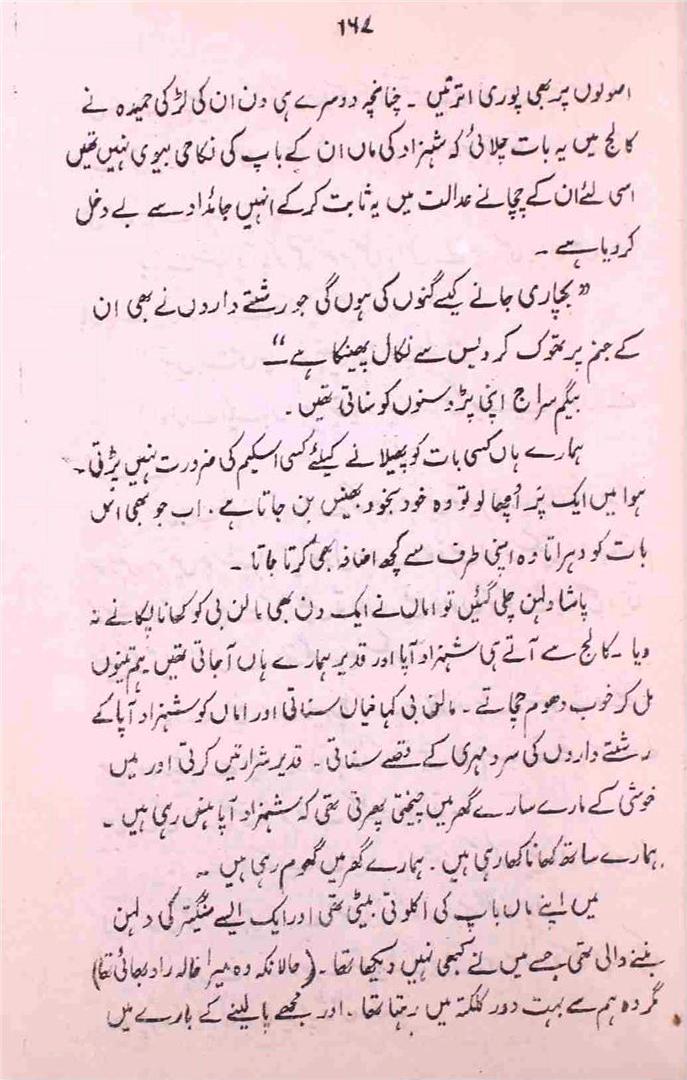 ۱۶۷
اصولوں پر بھی پوری اتر تیں ۔ چنانچہ دوسرے ہی دن ان کی لڑکی حمیدہ نے
کالج میں یہ بات چلائی کہ شہزاد کی ماں ان کے باپ کی نکاحی بیوی نہیں تھیں
اسی لئے ان کے چچا نے عدالت میں یہ ثابت کر کے انہیں جائداد سے بے دخل
کر دیا ہے ۔
” بچاری جانے کیسے گنوں کی ہوں گی جو رشتے داروں نے بھی ان
کے جنم پر تھوک کر دیس سے نکال پھینکا ہے “
بیگم سراج اپنی پڑوسنوں کو سناتی تھیں ۔
ہمارے ہاں کسی بات کو پھیلانے کیلئے کسی اسکیم کی ضرورت نہیں پڑتی ۔
ہوا میں ایک پَر اُچھا لو تو وہ خود بخود بھینس بن جاتا ہے ۔ اب جو بھی اس
بات کو دہراتا وہ اپنی طرف سے کچھ اضافہ بھی کرتا جاتا ۔
پاشا دلہن چلی گئیں تو اماں نے ایک دن بھی مالن بی کو کھانا پکانے نہ
دیا ۔ کالج سے آتے ہی شہزاد آپا اور قدیر ہمارے ہاں آجاتی تھیں ہم تینوں
مل کر خوب دھوم مچاتے ۔ مالن بی کہانیاں سناتی اور اماں کو شہزاد آپا کے
رشتے داروں کی سرد مہری کے قصے سناتی ۔ قدیر شرارتیں کرتی اور میں
خوشی کے مارے سارے گھر میں چیختی پھرتی تھی کہ شہزاد آپا ہنس رہی ہیں ۔
ہمارے ساتھ کھانا کھا رہی ہیں ۔ ہمارے گھر میں گھوم رہی ہیں ۔
میں اپنے ماں باپ کی اکلوتی بیٹی تھی اور ایک ایسے منگیتر کی دلہن
بننے والی تھی جسے میں نے کبھی نہیں دیکھا تھا ۔ (حالانکہ وہ میرا خالہ زاد بھائی تھا)
مگر وہ ہم سے بہت دور کلکتہ میں رہتا تھا ۔ اور مجھے پا لینے کے بارے میں